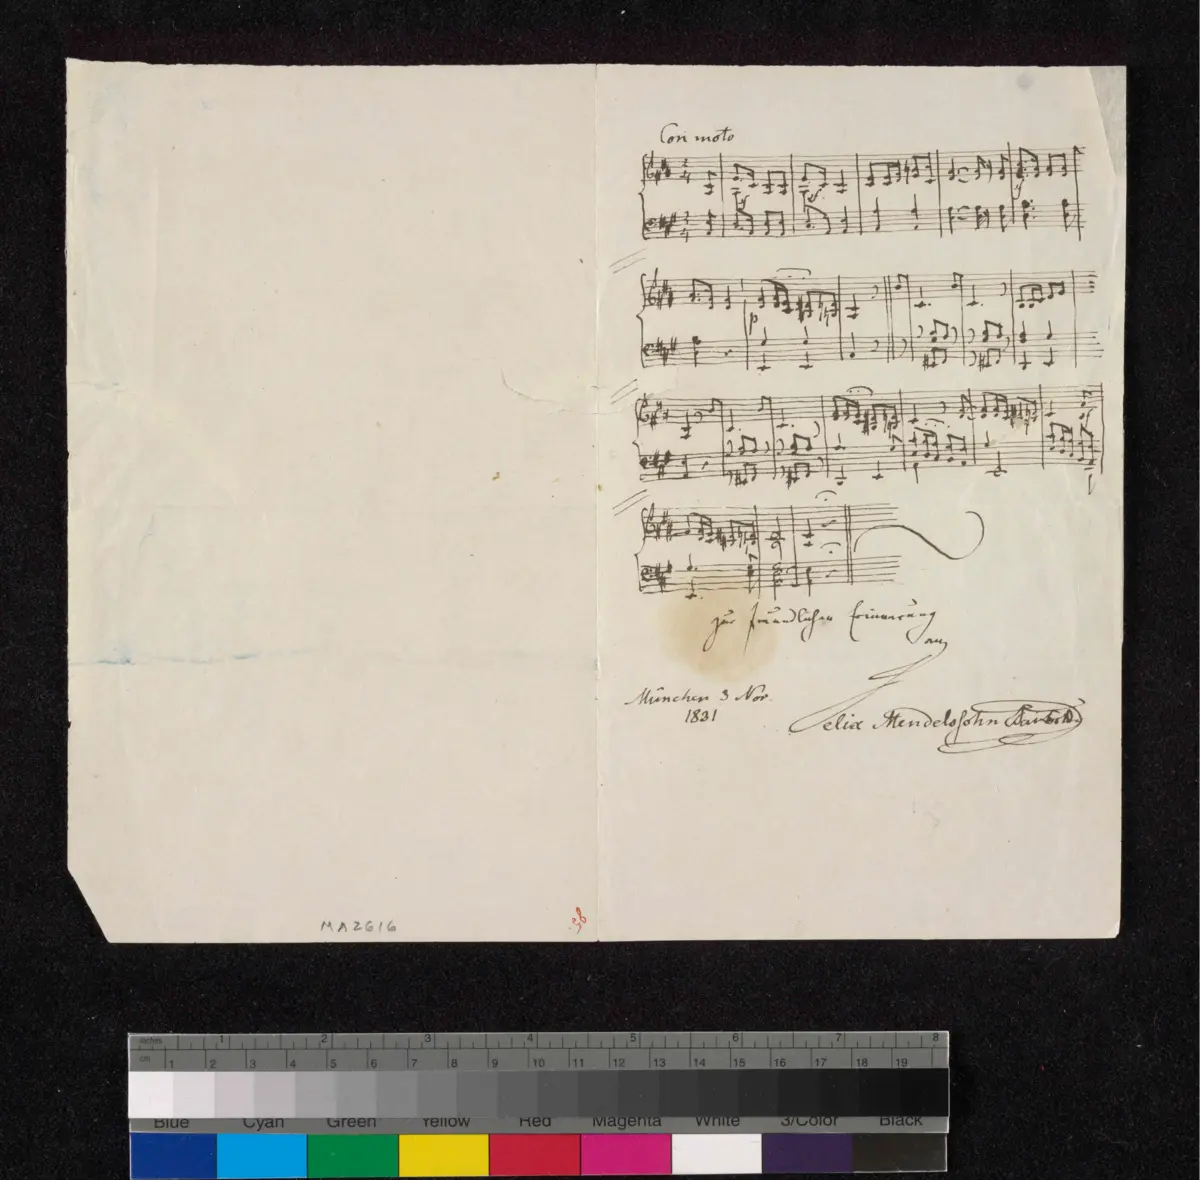 Con moto
2
4
2
4
sf
sf
sf
p
zur freundlichen Erinnerung
an
München 3 Nov.
1831
Felix Mendelssohn Bartholdy
MA2616
inches 1 2 3 4 5 6 7 8
cm 1 2 3 4 5 6 7 8 9 10 11 12 13 14 15 16 17 18 19
Blue Cyan Green Yellow Red Magenta White 3/Color Black